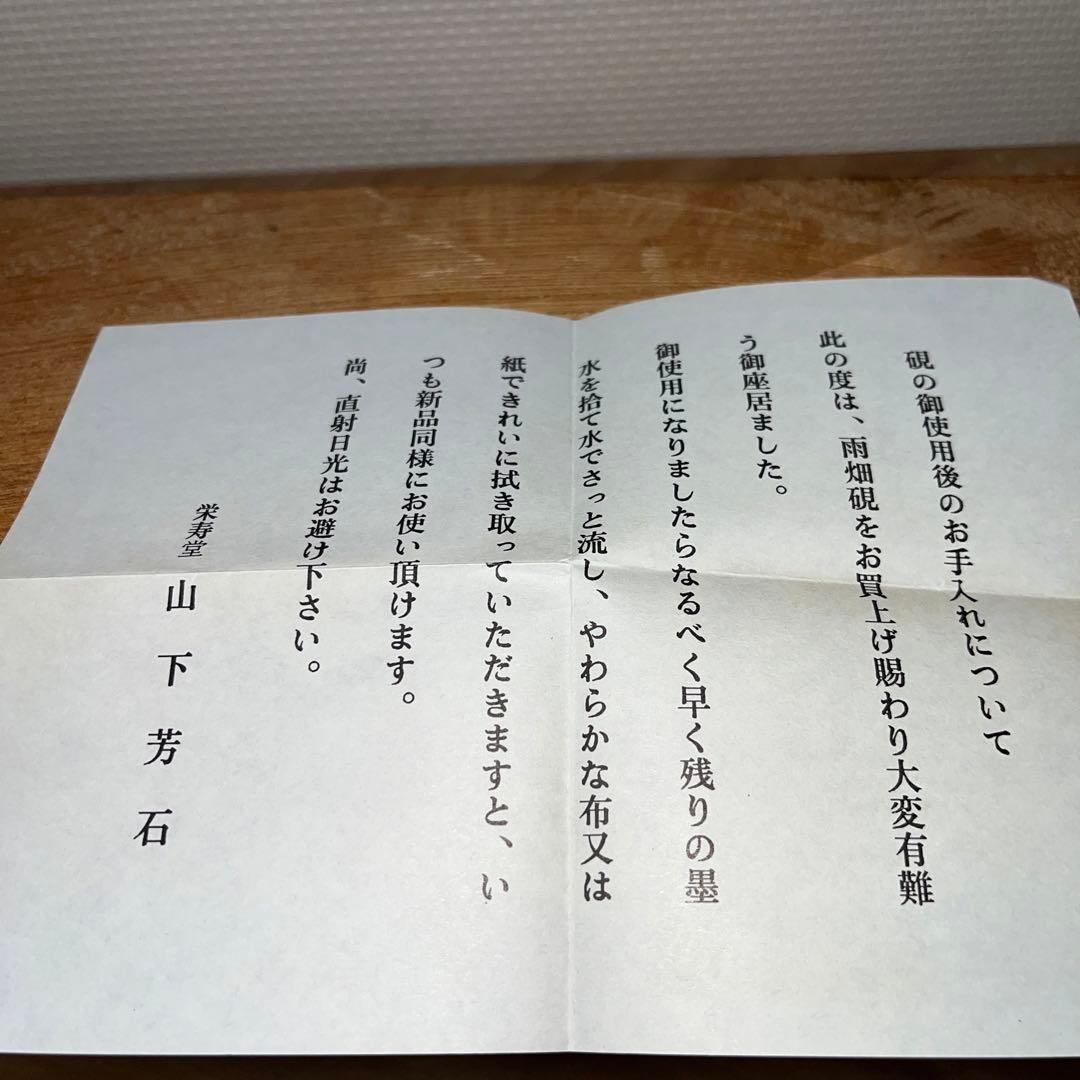 硯の御使用後のお手入れについて
此の度は、雨畑硯をお買上げ賜わり大変有難
う御座居ました。
御使用になりましたらなるべく早く残りの墨
水を捨て水でさっと流し、やわらかな布又は
紙できれいに拭き取っていただきますと、い
つも新品同様にお使い頂けます。
尚、直射日光はお避け下さい。
栄寿堂 山下芳石